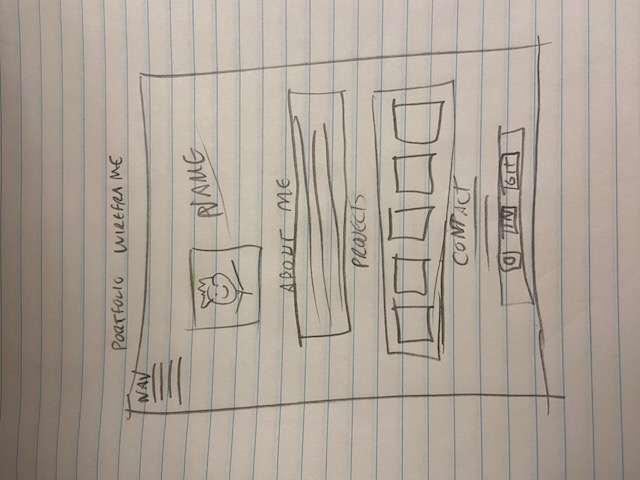 PORTFOLIO WIREFRAME
NAV
NAME
ABOUT ME
PROJECTS
CONTACT
IN GIT